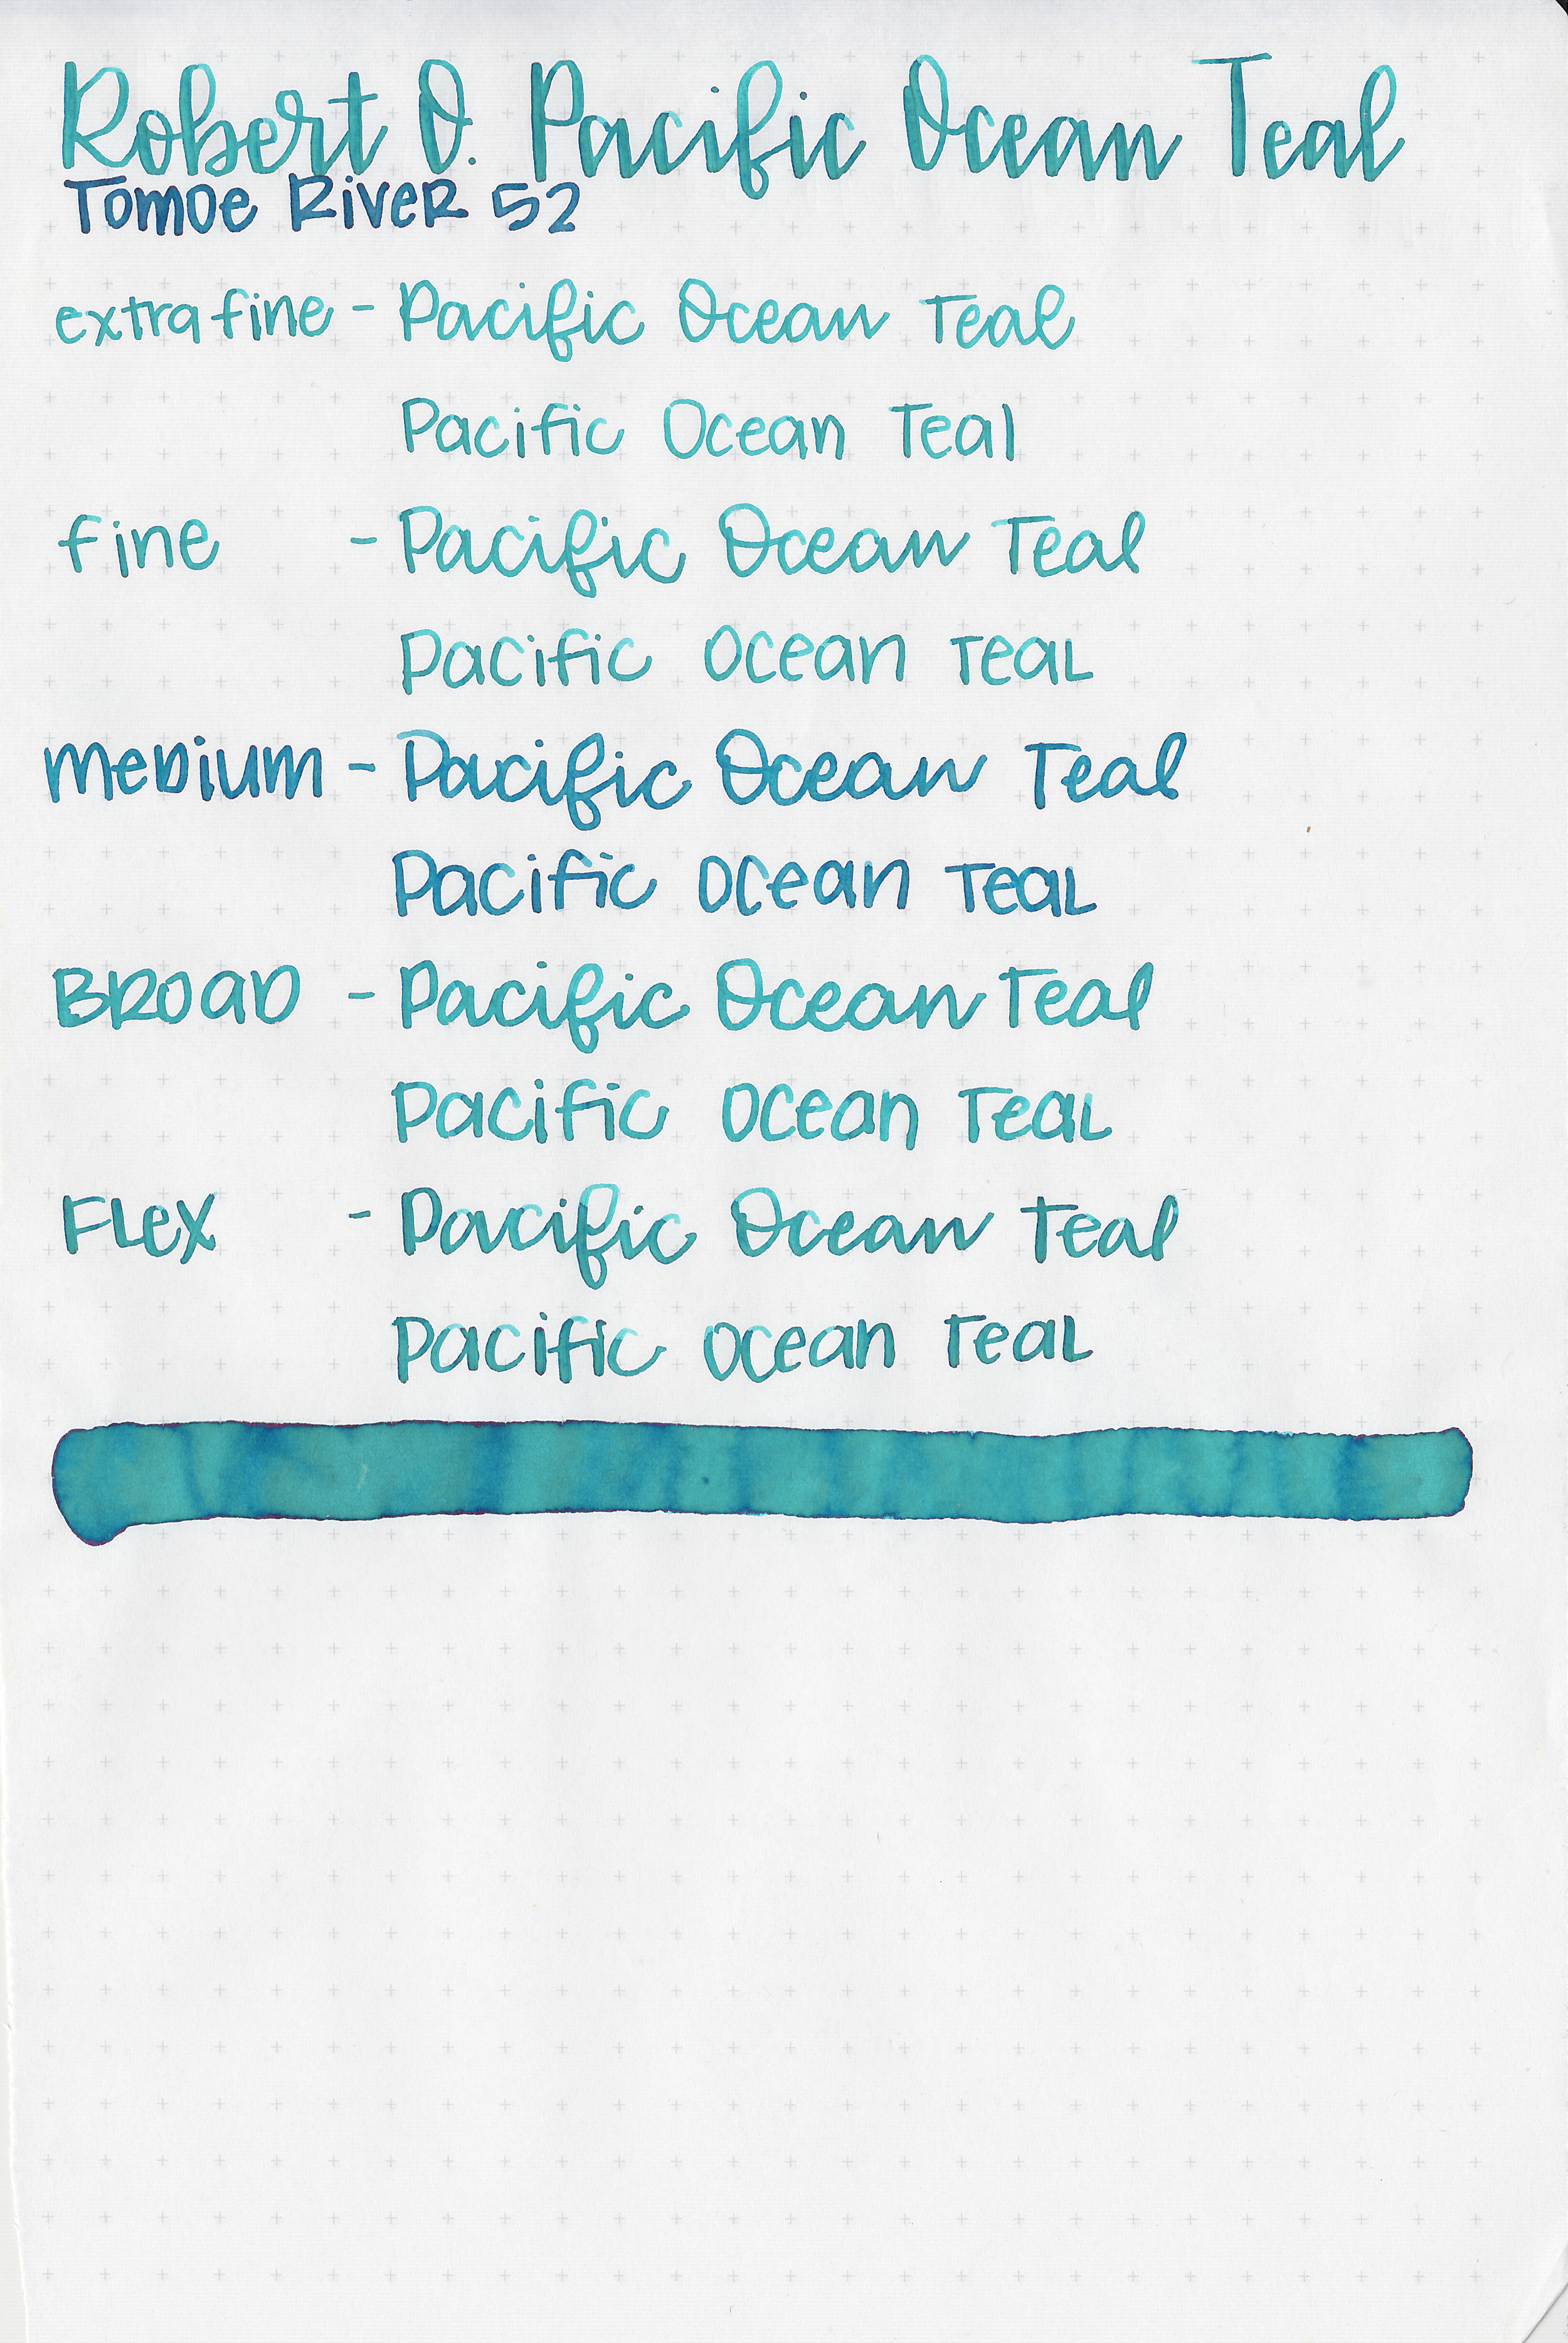 Robert O. Pacific Ocean Teal
Tomoe River 52
extra fine - Pacific Ocean Teal
Pacific Ocean Teal
fine - Pacific Ocean Teal
Pacific Ocean Teal
Medium - Pacific Ocean Teal
Pacific Ocean Teal
Broad - Pacific Ocean Teal
Pacific Ocean Teal
Flex - Pacific Ocean Teal
Pacific Ocean Teal